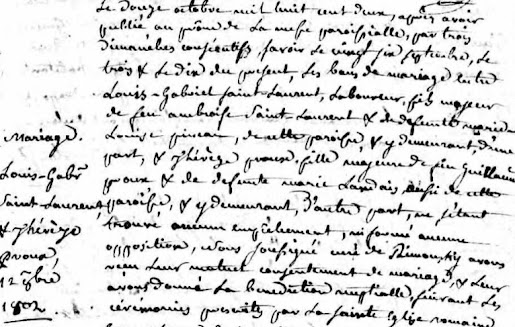 Le Douze octobre mil huit cent deux, après avoir
publié au prône de la messe paroissialle, par trois
Dimanches consécutifs, savoir le vingt six septembre, le
trois & le dix du present, les bans de mariage entre
Louis-Gabriel Saint-Laurent, Laboureur, fils majeur
de feu ambroise Saint-Laurent & de defunte marie
Louise pineau, de cette paroisse, & y demeurant, d'une
part, & Thérèse proux, fille majeure de feu Guillaume
proux & de defunte marie Landais aussi de cette
paroisse, & y demeurant, D'autre part, ne s'étant
trouvé aucun empêchement, ni formé aucune
opposition, Nous soussigné curé de Rimousky avons
recu Leur mutuel consentement de mariage, & Leur
avons donné La benediction nuptialle, suivant Les
cérémonies prescrites par La Sainte Eglise romaine
Mariage.
Louis-Gab.
Saint-Laurent
& Thérèse
proux,
12 8bre
1802.